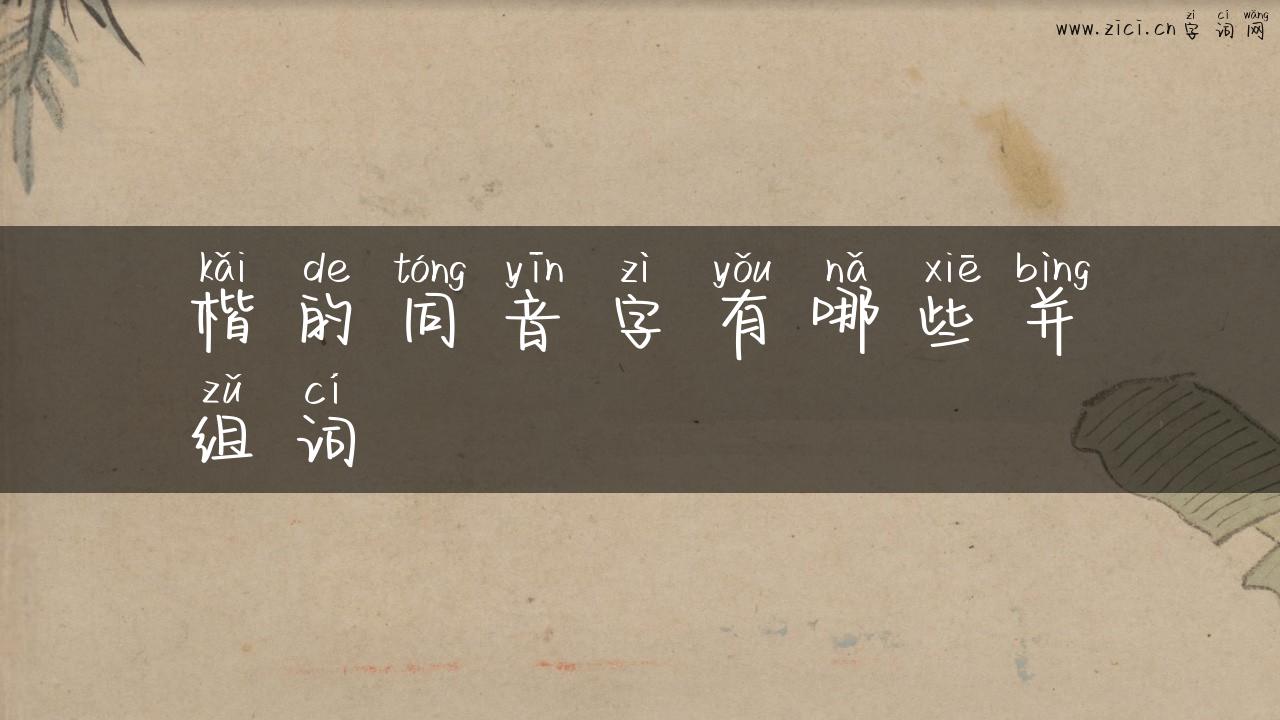 zì cí wǎng
www.zici.cn 字 词 网
kǎi de tóng yīn zì yǒu nǎ xiē bìng
楷 的 同 音 字 有 哪 些 并
zǔ cí
组 词